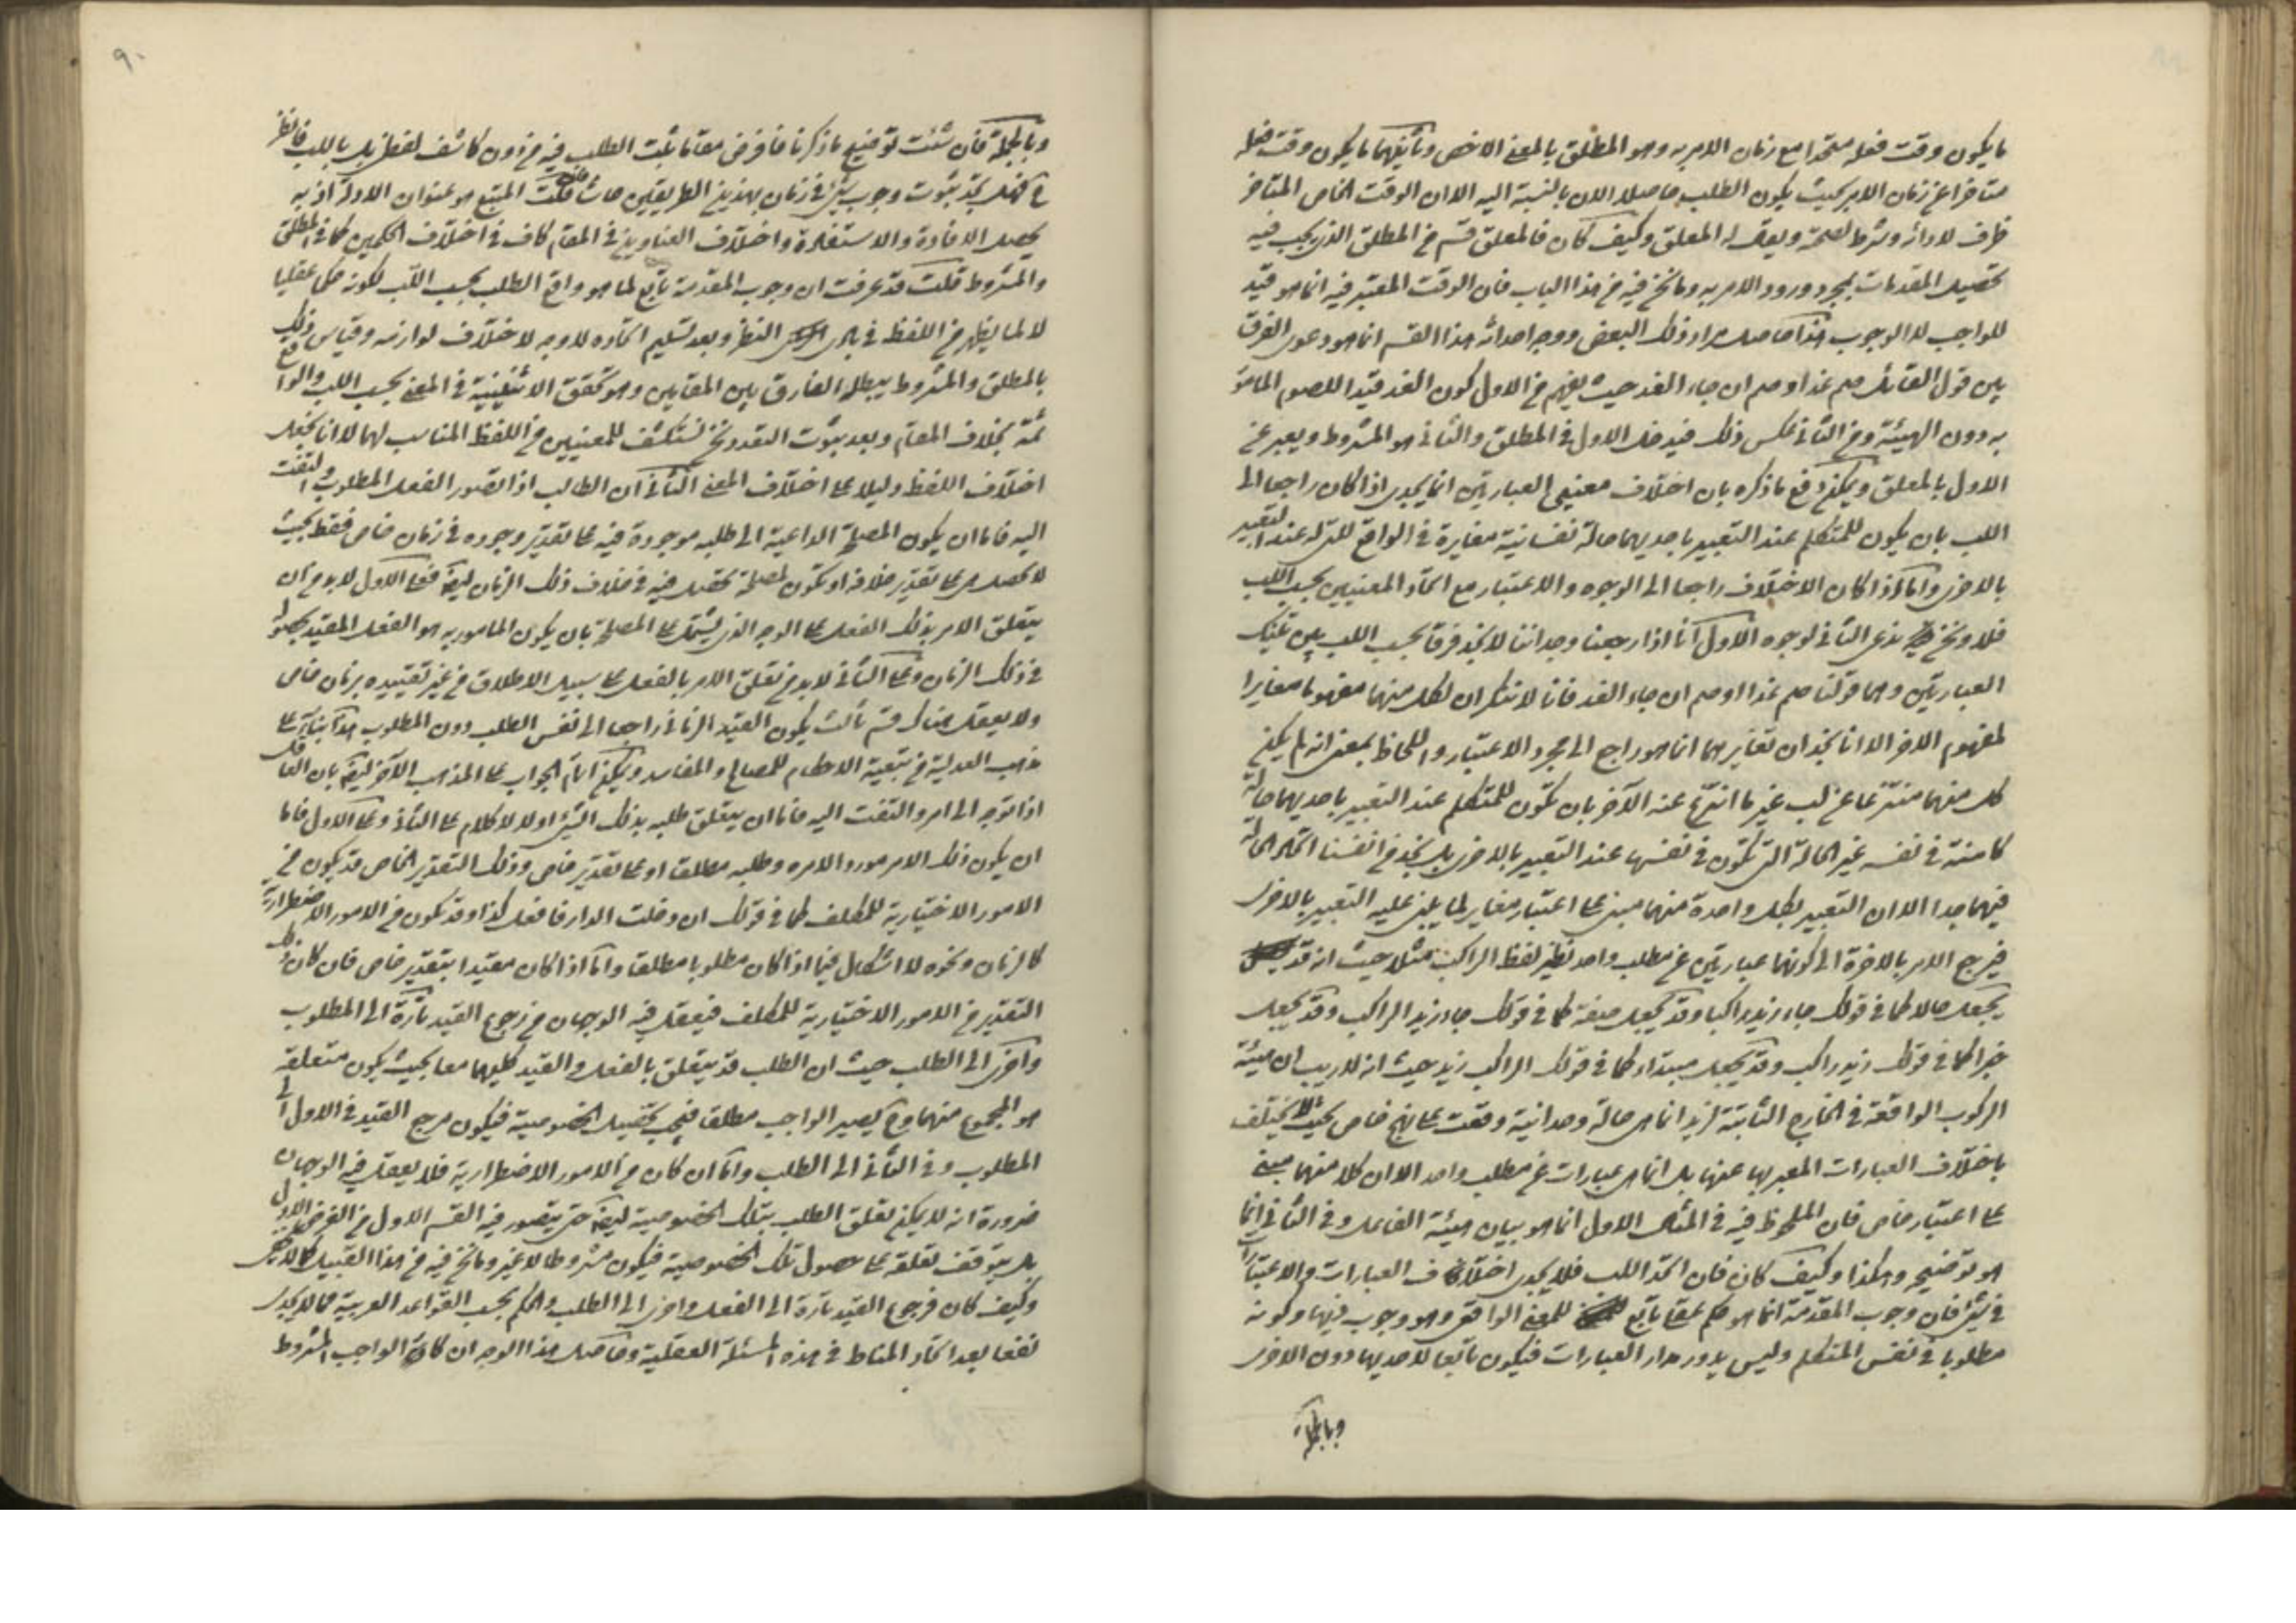 ما يكون وقت فعله متحدا مع زمان الامر به وهو المطلق بالمعنى الاخص وثانيهما ما يكون وقت فعله
متاخرا عن زمان الامر بحيث يكون الطلب حاصلا الان بالنسبة اليه الا ان الوقت الخاص المتاخر
ظرف لادائه وشرط لصحته ويقال له المعلق وكيف كان فالمعلق قسم من المطلق الذى يجب فيه
تحصيل المقدمات بمجرد ورود الامر به وما نحن فيه من هذا الباب فان الوقت المعتبر فيه انما هو قيد
للواجب لا للوجوب هذا حاصل مراد ذلك البعض ووجه احداثه هذا القسم انما هو دعوى الفرق
بين قول القائل صم غدا وصم ان جاء الغد حيث يفهم من الاول كون الغد قيدا للصوم المامور
به دون الهيئة ومن الثانى عكس ذلك فيدخل الاول فى المطلق والثانى هو المشروط ويعبر عن
الاول بالمعلق ويمكن دفع ما ذكره بان اختلاف معنيى العبارتين انما يجدى اذا كان راجعا الى
اللب بان يكون للمتكلم عند التعبير باحديهما حالة نفسانية مغايرة فى الواقع للتى له عند التعبير
بالاخرى واما اذا كان الاختلاف راجعا الى الوجوه والاعتبار مع اتحاد المعنيين بحسب اللب
فلا ونحن ندعى الثانى لوجوه الاول انا اذا راجعنا وجداننا لا نجد فرقا بحسب اللب بين تينك
العبارتين وهما قولنا صم غدا وصم ان جاء الغد فانا لا ننكر ان لكل منهما مفهوما مغايرا
لمفهوم الاخر الا انا نجد ان تغايرهما انما هو راجع الى مجرد الاعتبار واللحاظ بمعنى انه لم يكن
كل منهما منتزعا عن لب غير ما انتزع عنه الآخر بان تكون للمتكلم عند التعبير باحديهما حالة
كامنة فى نفسه غير الحالة التى تكون فى نفسها عند التعبير بالاخرى بل نجد من انفسنا اتحاد الحالة
فيهما جدا الا ان التعبير بكل واحدة منهما مبنى على اعتبار مغاير لما يبنى عليه التعبير بالاخرى
فيرجع الامر بالاخرة الى كونهما عبارتين عن مطلب واحد نظير لفظ الراكب مثلا حيث انه قد
يجعل حالا كما فى قولك جاء زيد راكبا وقد يجعل صفة كما فى قولك جاء زيد الراكب وقد يجعل
خبرا كما فى قولك زيد راكب وقد يجعل مبتداء كما فى قولك الراكب زيد حيث انه لا ريب ان هيئة
الركوب الواقعة فى الخارج الثابتة لزيد انما هى حالة وحدانية وقعت على نهج خاص بحيث لا يختلف
باختلاف العبارات المعبر بها عنها بل انما هى عبارات عن مطلب واحد الا ان كلا منهما مبنى
على اعتبار خاص فان الملحوظ فيه فى المثال الاول انما هو بيان هيئة الفاعل وفى الثانى انما
هو توضيحه وهكذا وكيف كان فان اتحد اللب فلا يجدى اختلاف العبارات والاعتبارات
فى شئ فان وجوب المقدمة انما هو حكم عقلى تابع للمعنى الواقعى وهو وجوب ذيها وكونه
مطلوبا فى نفس المتكلم وليس يدور مدار العبارات فيكون تابعا لاحديها دون الاخرى
وبالجملة
٩٠
وبالجملة فان شئت توضيح ما ذكرنا فافرض مقاما ثبت الطلب فيه من دون كاشف لفظى بل باللب فانظر
هل تجد ثبوت وجوب شئ فى زمان بهذين الطريقين حاشا فان قلت المتبع هو عنوان الادلة اذ به
يحصل الافادة والاستفادة واختلاف العناوين فى المقام كاف فى اختلاف الحكمين كما فى المطلق
والمشروط قلت قد عرفت ان وجوب المقدمة تابع لما هو واقع الطلب بحسب اللب لكونه حكما عقليا
لا لما يظهر من اللفظ فى بادى النظر وبعد تسليم اتحاده لا وجه لاختلاف لوازمه وقياس ذلك
بالمطلق والمشروط يبطله الفارق بين المقامين وهو تحقق الاثنينية فى المعنى بحسب اللب والواقع
ثمة بخلاف المقام وبعد ثبوت التعدد ونحن نستكشف المعنيين من اللفظ المناسب لهما لا انا نجعل
اختلاف اللفظ دليلا على اختلاف المعنى الثانى ان الطالب اذا تصور الفعل المطلوب والتفت
اليه فاما ان يكون المصلحة الداعية الى طلبه موجودة فيه على تقدير وجوده فى زمان خاص فقط بحيث
لا تحصل على تقدير خلافه او تكون المصلحة تحصل فيه فى خلاف ذلك الزمان ايضا فعلى الاول لا بد من ان
يتعلق الامر بذلك الفعل على الوجه الذى يشتمل على المصلحة بان يكون المامور به هو الفعل المقيد بحصوله
فى ذلك الزمان وعلى الثانى لا بد من تعلق الامر بالفعل على سبيل الاطلاق من غير تقييده بزمان خاص
ولا يعقل هناك قسم ثالث يكون القيد الزمانى راجعا الى نفس الطلب دون المطلوب هذا بناء على
مذهب العدلية من تبعية الاحكام للمصالح والمفاسد ويمكن اتمام الجواب على المذهب الآخر ايضا بان العاقل
اذا توجه الى امر والتفت اليه فاما ان يتعلق طلبه بذلك الشئ او لا لا كلام على الثانى وعلى الاول فاما
ان يكون ذلك الامر موردا لامره وطلبه مطلقا او على تقدير خاص وذلك التقدير الخاص قد يكون من
الامور الاختيارية للمكلف كما فى قولك ان دخلت الدار فافعل كذا وقد تكون من الامور الاضطرارية
كالزمان ونحوه لا اشكال فيما اذا كان مطلوبا مطلقا واما اذا كان مقيدا بتقدير خاص فان كان ذلك
التقدير من الامور الاختيارية للمكلف فيعقل فيه الوجهان من رجوع القيد تارة الى المطلوب
واخرى الى الطلب حيث ان الطلب قد يتعلق بالفعل والقيد كليهما معا بحيث يكون متعلقه
هو المجموع منهما وح يصير الواجب مطلقا فيجب تحصيل الخصوصية فيكون مرجع القيد فى الاول الى
المطلوب وفى الثانى الى الطلب واما ان كان من الامور الاضطرارية فلا يعقل فيه الوجهان
ضرورة انه لا يمكن تعلق الطلب بتلك الخصوصية ايضا حتى يتصور فيه القسم الاول من الفرض الاول
بل يتوقف تعلقه على حصول تلك الخصوصية فيكون مشروطا لا غير وما نحن فيه من هذا القبيل كما لا يخفى
وكيف كان فرجوع القيد تارة الى الفعل واخرى الى الطلب والحكم بحسب القواعد العربية مما لا يجدى
نفعا بعد اتحاد المناط فى هذه المسئلة العقلية وحاصل هذا الوجه ان كان الواجب المشروط